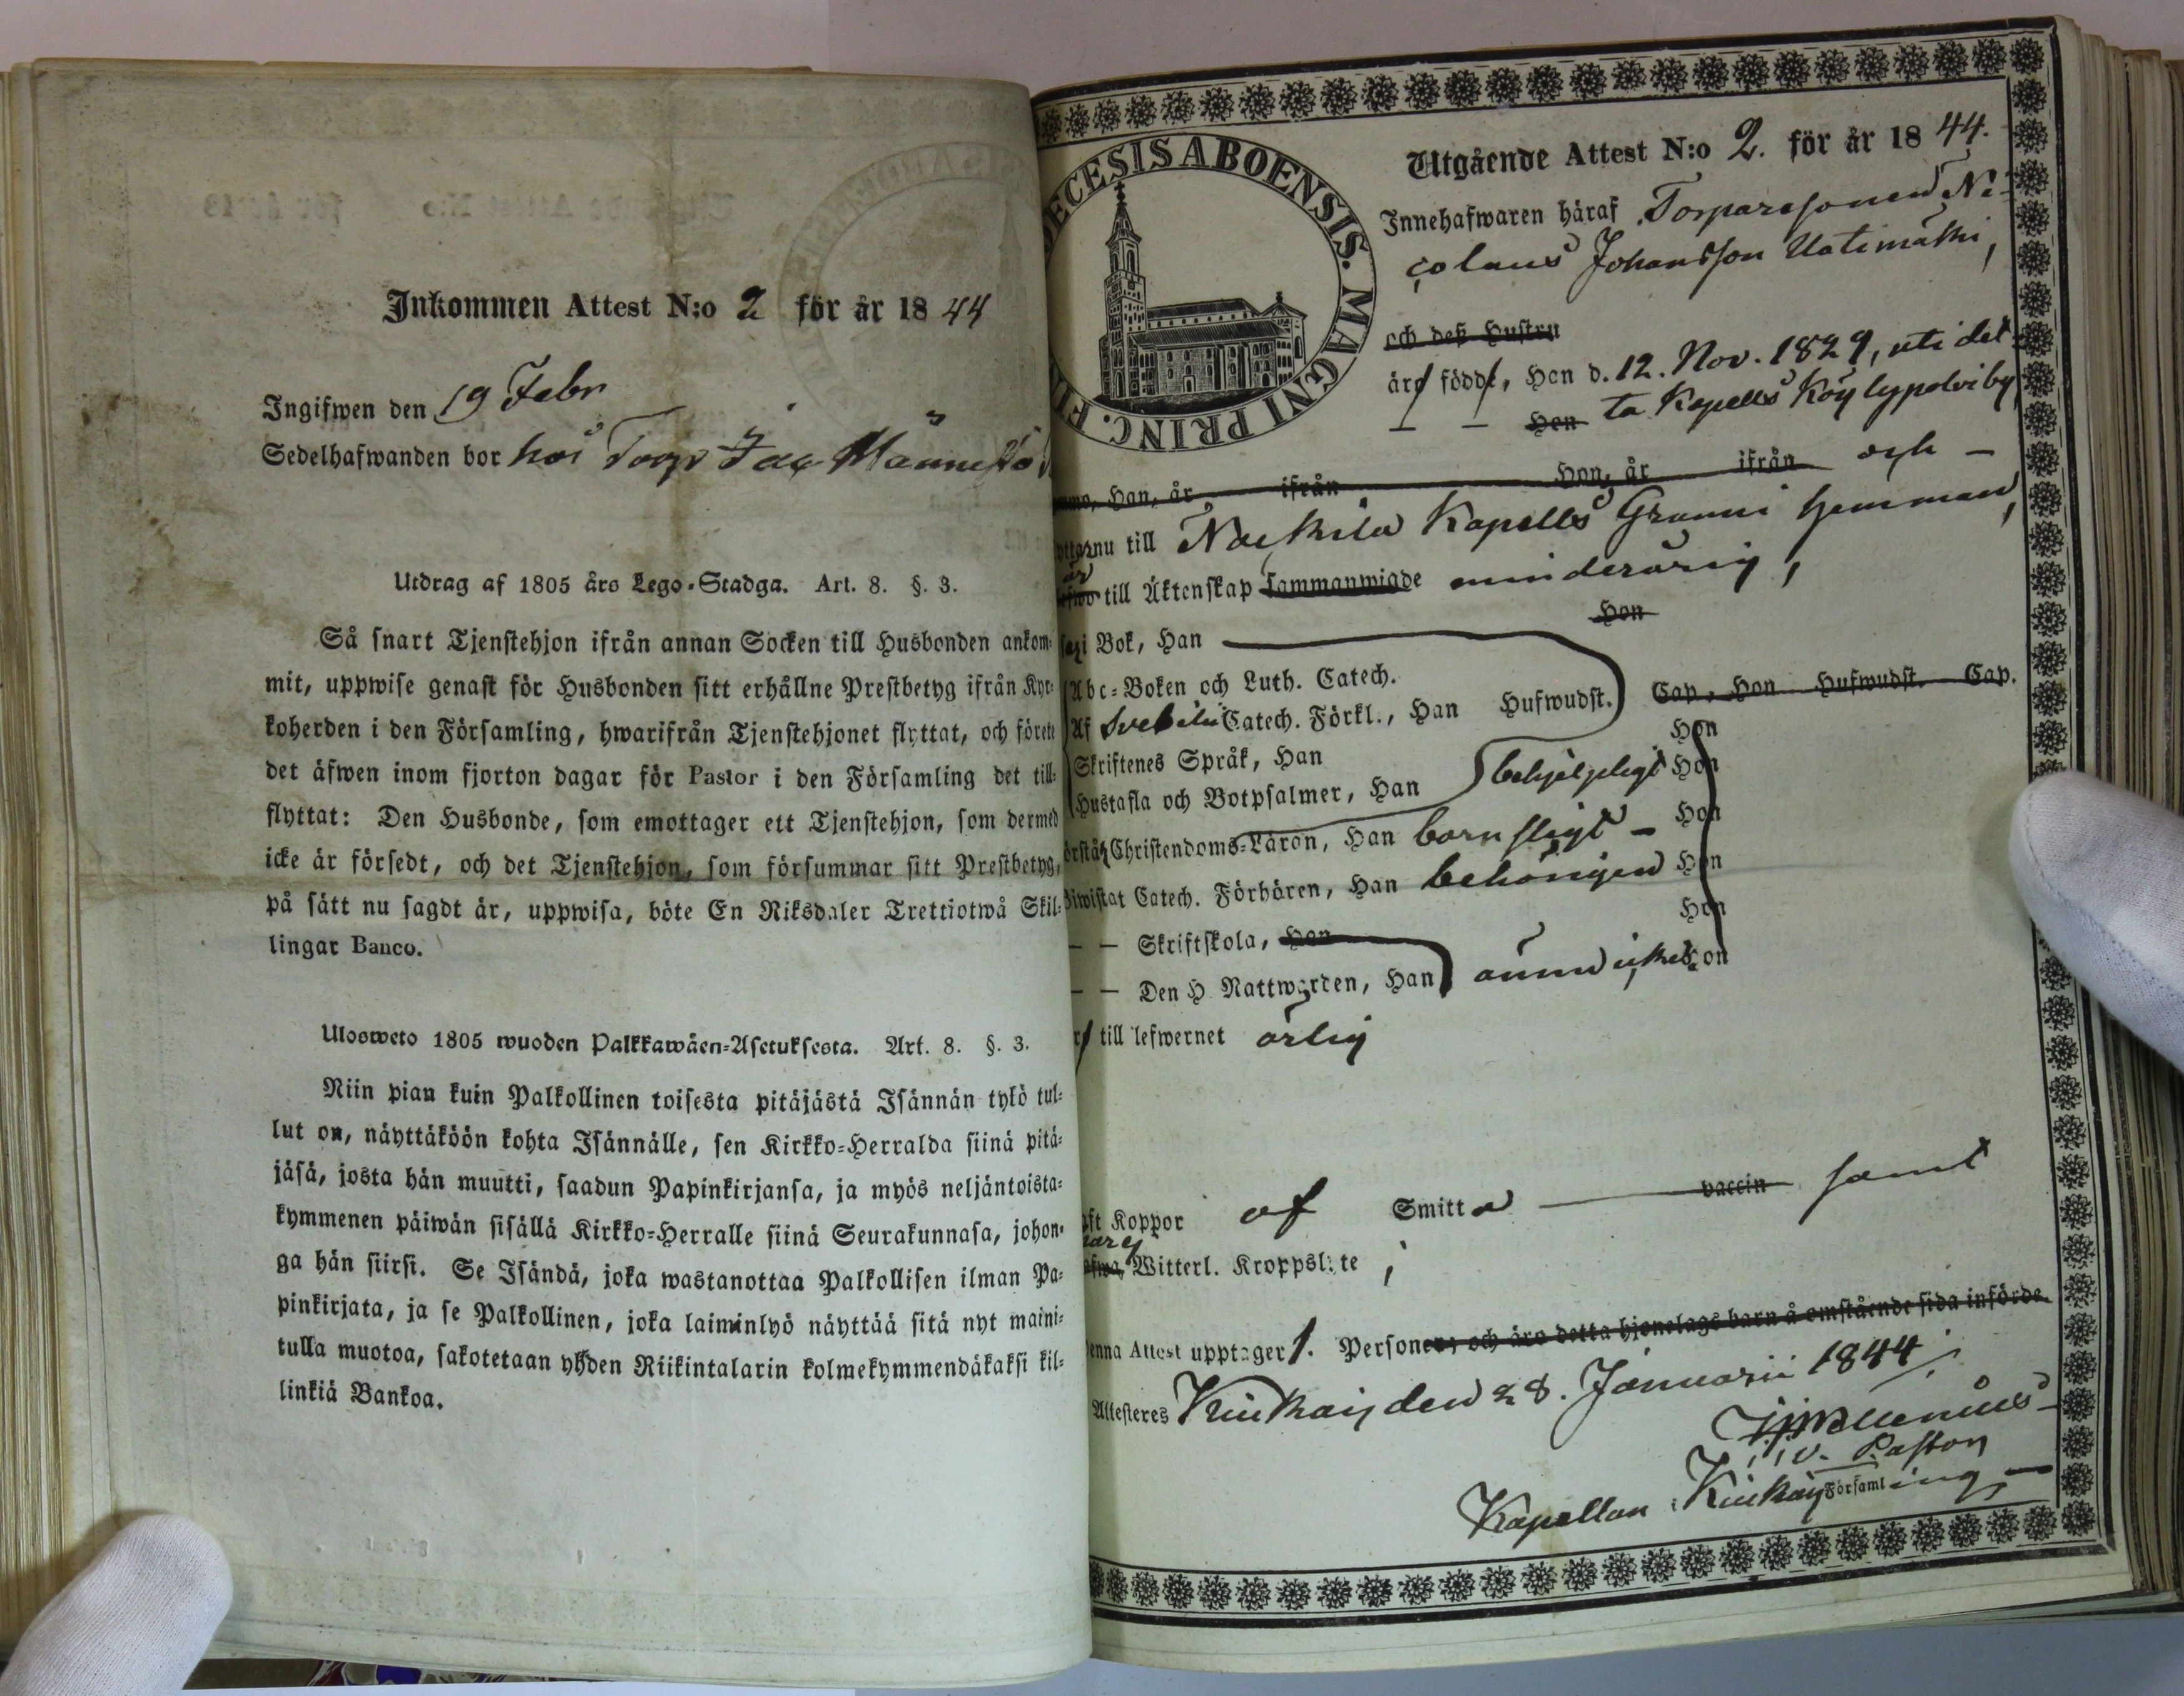 Inkommen Attest N:o 2 för år 1844
Ingifwen den 19 Febr
Sedelhafwanden bor hos Torp
Utdrag af 1805 års Lego-Stadga. Art. 8. §. 3.
Så snart Tjenstehjon ifrån annan Socken till Husbonden ankom-
mit, uppwise genast för Husbonden sitt erhållne Prestbetyg ifrån Kyr-
koherden i den Församling, hwarifrån Tjenstehjonet flyttat, och förete
det äfwen inom fjorton dagar för Pastor i den Församling det till-
flyttat: Den Husbonde, som emottager ett Tjenstehjon, som dermed
icke är försedt, och det Tjenstehjon, som försummar sitt Prestbetyg,
på sätt nu sagdt är, uppwisa, böte En Riksdaler Trettiotwå Skil-
lingar Banco.
Ulosweto 1805 wuoden Palkkawäen-Asetuksesta. Art. 8. §. 3.
Niin pian kuin Palkollinen toisesta pitäjästä Isännän tykö tul-
lut on, näyttäköön kohta Isännälle, sen Kirkko-Herralda siinä pitä-
jäsä, josta hän muutti, saadun Papinkirjansa, ja myös neljäntoista-
kymmenen päiwän sisällä Kirkko-Herralle siinä Seurakunnasa, johon-
ga hän siirsi. Se Isändä, joka wastanottaa Palkollisen ilman Pa-
pinkirjata, ja se Palkollinen, joka laiminlyö näyttää sitä nyt maini-
tulla muotoa, sakotetaan yhden Riikintalarin kolmekymmendäkaksi kil-
linkiä Bankoa.
DIOECESIS ABOENSIS. MAGNI PRINC.
Utgående Attest N:o 2. för år 1844.
Innehafwaren häraf Torparesonen Ni-
colaus Johansson Uotimäki,
och dess Hustru
äro födde, Han d. 12. Nov. 1829, uti det-
— — Hon ta Kapells Köylypolvi by
Han, år ifrån Hon, år ifrån och —
nu till Nackila Kapells Granni hemman,
är
till Äktenskap sammanwigde minderårig,
i Bok, Han Hon
Abc-Boken och Luth. Catech.
Af Svebilii Catech. Förkl., Han Hufwudst. Cap, Hon Hufwudst. Cap.
Skriftenes Språk, Han Hon
Hustafla och Botpsalmer, Han behjelpligt Hon
Christendoms-Läran, Han barnsligt — Hon
Catech. Förhören, Han behörigen Hon
— — Skriftskola, Han Hon
— — Den H Nattwarden, Han ännu icke Hon
till lefwernet ärlig
Koppor af Smitta vaccin samt
Witterl. Kroppslyte,
Denna Attest upptager 1. Personer, och äro detta hjonelags barn å omstående sida införde.
Attesteres Kiukais den 28. Januarii 1844
v. Pastor
Kapellan i Kiukais Församling